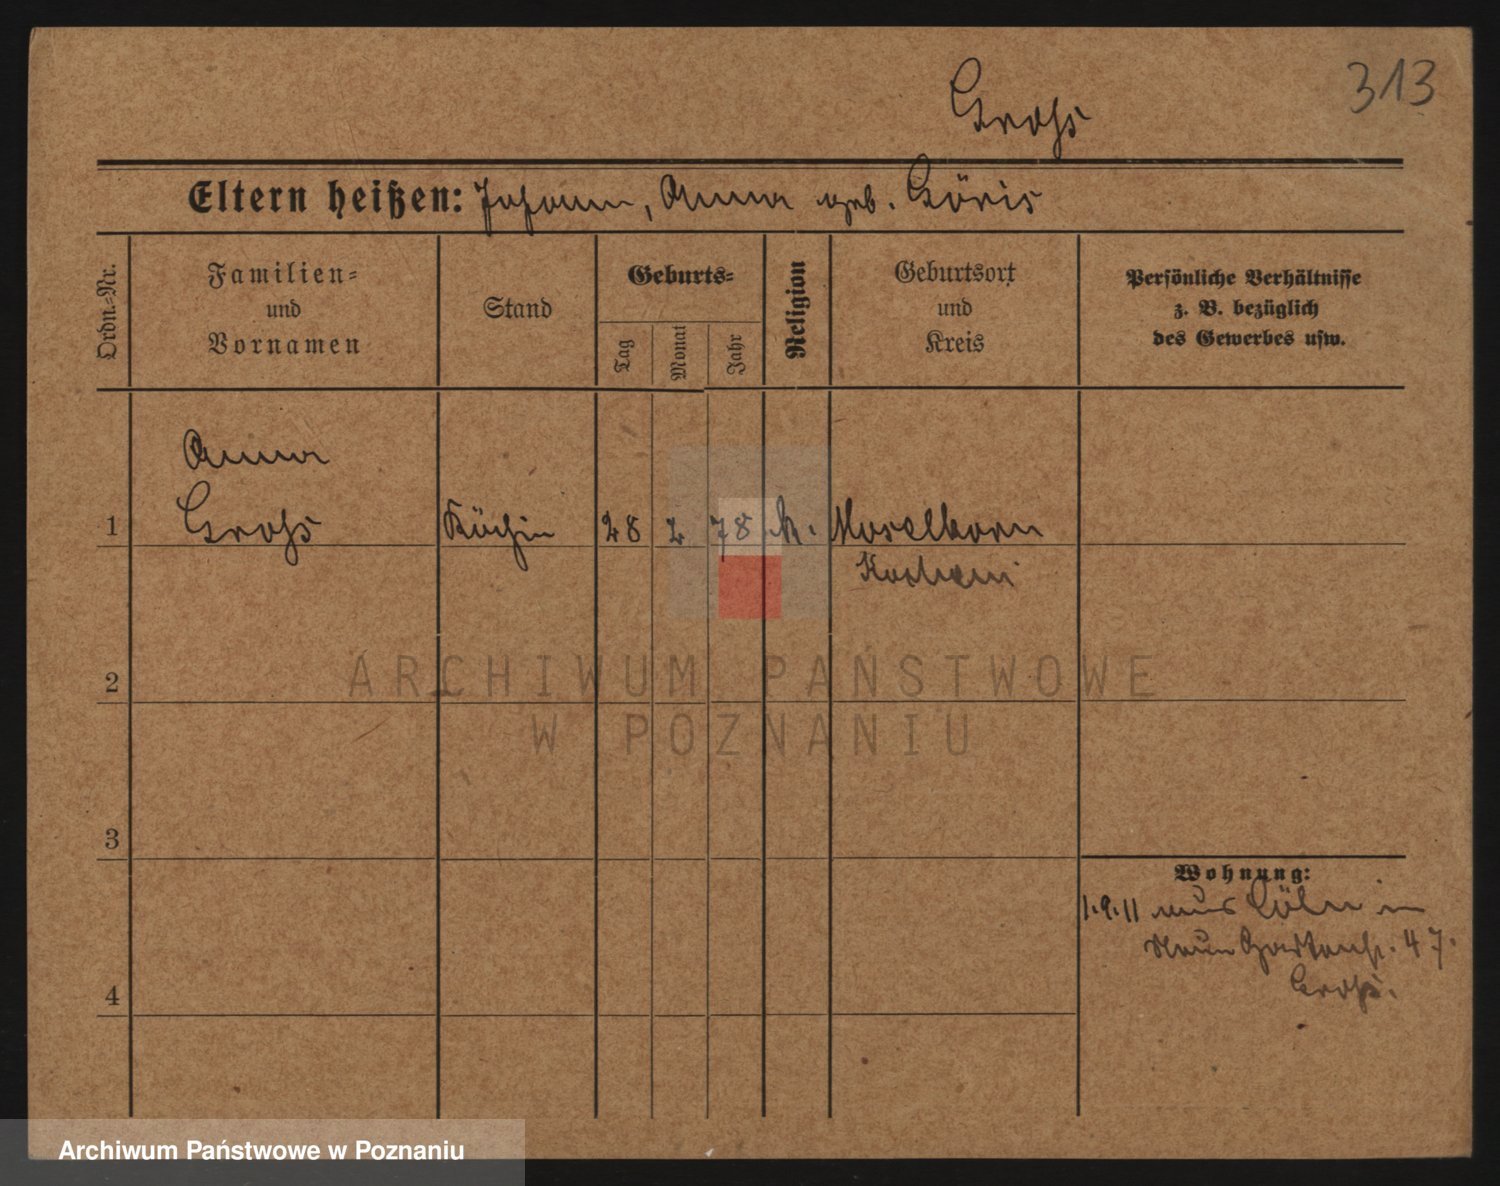 313
Groß
Eltern heißen: Johann, Anna geb. Göris
Ordn.-Nr.
Familien-
und
Vornamen
Stand
Geburts-
Tag
Monat
Jahr
Religion
Geburtsort
und
Kreis
Persönliche Verhältnisse
z. B. bezüglich
des Gewerbes usw.
Anna
1 Groß Köchin 28 2 78 k. Moselkern
Kochem
2
ARCHIWUM PAŃSTWOWE
W POZNANIU
3
Wohnung:
1.9.11 aus Cöln in
Gartenstr. 47.
4
Groß.
Archiwum Państwowe w Poznaniu